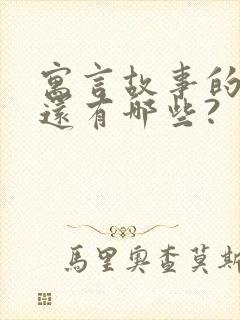 寓言故事的
還有哪些?
馬里奧查莫斯